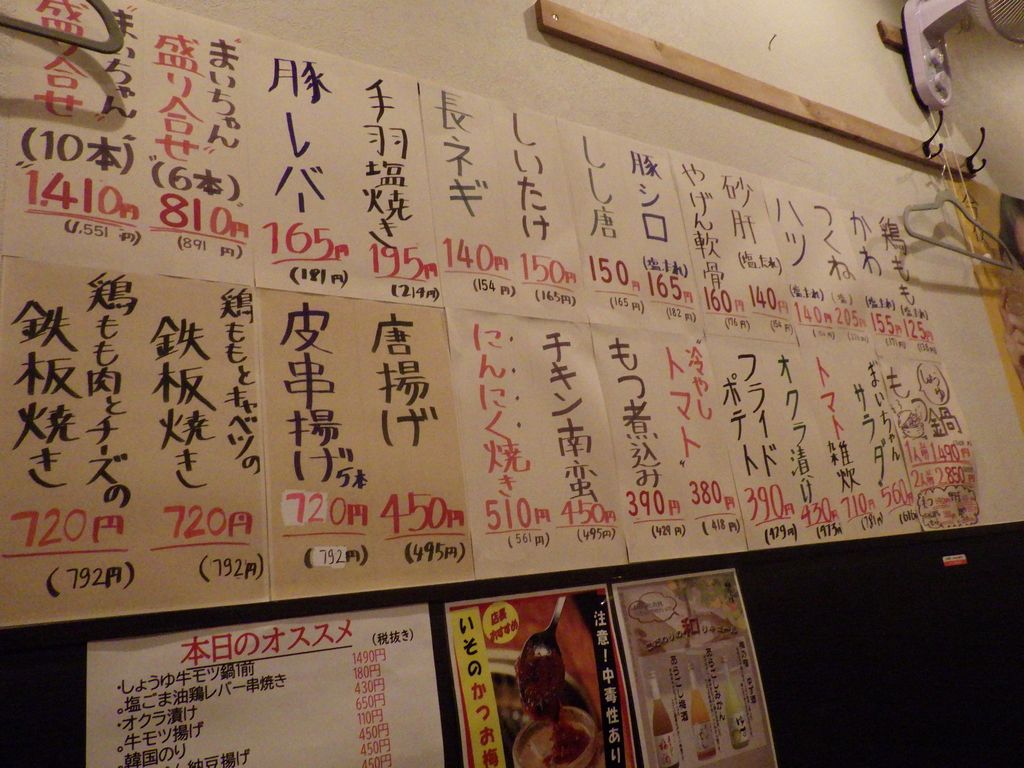 鶏もも
(塩たれ)
125円
かわ
(塩たれ)
155円
つくね
(塩)
205円
ハツ
(塩たれ)
140円
砂肝
(塩たれ)
140円
やげん軟骨
160円
(176円)
豚シロ
(塩たれ)
165円
(182円)
しし唐
150円
(165円)
しいたけ
150円
(165円)
長ネギ
140円
(154円)
手羽塩焼き
195円
(214円)
豚レバー
165円
(181円)
"まいちゃん
盛り合せ"
(6本)
810円
(891円)
"まいちゃん
盛り合せ"
(10本)
1,410円
(1,551円)
もつ鍋
1人前 1,490円
2人前 2,850円
まいちゃん
サラダ
560円
(616円)
トマト雑炊
710円
(781円)
オクラ漬け
430円
(473円)
フライド
ポテト
390円
(429円)
"冷やし
トマト"
380円
(418円)
もつ煮込み
390円
(429円)
チキン南蛮
450円
(495円)
にんにく焼き
510円
(561円)
唐揚げ
450円
(495円)
皮串揚げ
5本
720円
(792円)
鶏ももとキャベツの
鉄板焼き
720円
(792円)
鶏もも肉とチーズの
鉄板焼き
720円
(792円)
本日のオススメ (税抜き)
・しょうゆ牛モツ鍋1前 1490円
。塩ごま油鶏レバー串焼き 180円
・オクラ漬け 430円
。牛モツ揚げ 650円
・韓国のり 110円
納豆揚げ 450円
450円
450円
店長
おすすめ
いそのかつお梅
注意!中毒性あり